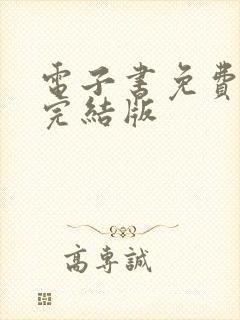 電子書免費
完結版
高專誠